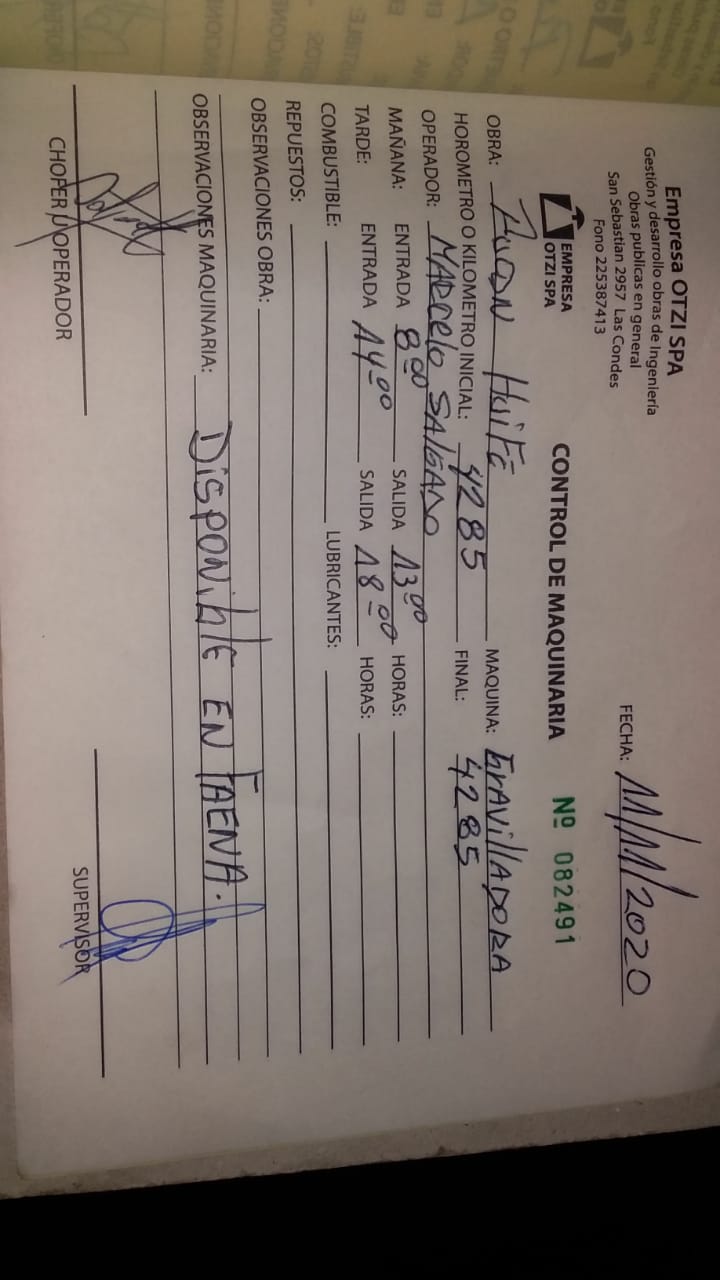 Empresa OTZI SPA
Gestión y desarrollo obras de Ingeniería
Obras publicas en general
San Sebastian 2957 Las Condes
Fono 225387413
FECHA: 11/11/2020
EMPRESA
OTZI SPA
CONTROL DE MAQUINARIA Nº 082491
OBRA: Huife MAQUINA: GravillADORA
HOROMETRO O KILOMETRO INICIAL: 4285 FINAL: 4285
OPERADOR: MARCelo SALGADO
MAÑANA: ENTRADA 8:00 SALIDA 13:00 HORAS:
TARDE: ENTRADA 14:00 SALIDA 18:00 HORAS:
COMBUSTIBLE: LUBRICANTES:
REPUESTOS:
OBSERVACIONES OBRA:
OBSERVACIONES MAQUINARIA: DisponiblE EN FAENA.
CHOFER U OPERADOR
SUPERVISOR